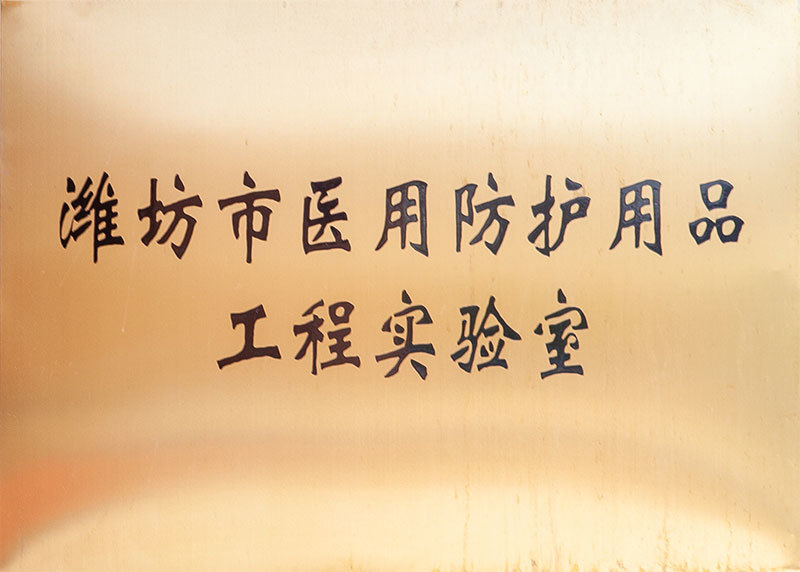 潍坊市医用防护用品
工程实验室